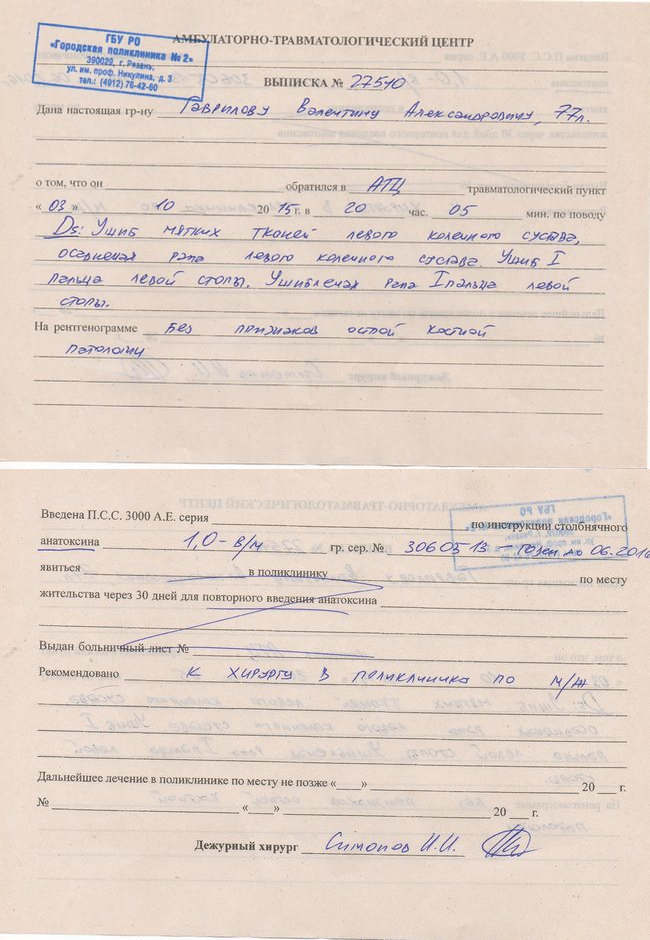 АМБУЛАТОРНО-ТРАВМАТОЛОГИЧЕСКИЙ ЦЕНТР
ГБУ РО
«Городская поликлиника № 2»
390029, г. Рязань,
ул. им. проф. Никулина, д. 3
тел.: (4912) 76-42-60
ВЫПИСКА № 27540
Дана настоящая гр-ну Гаврилову Валентину Александровичу, 77л.
о том, что он обратился в АТЦ травматологический пункт
« 03 » 10 2015г. в 20 час. 05 мин. по поводу
Ds: Ушиб мягких тканей левого коленного сустава,
осадненая рана левого коленного сустава. Ушиб I
пальца левой стопы. Ушибленая рана I пальца левой
стопы.
На рентгенограмме Без признаков острой костной
патологии
Введена П.С.С. 3000 А.Е. серия по инструкции столбнячного
анатоксина 1,0 - в/м гр. сер. № 3060513 годен до 06.2016
явиться в поликлинику по месту
жительства через 30 дней для повторного введения анатоксина
Выдан больничный лист №
Рекомендовано К хирургу в поликлинике по м/ж
Дальнейшее лечение в поликлинике по месту не позже «___» 20 ___ г.
№ «___» 20 ___ г.
Дежурный хирург Симонов И.И.